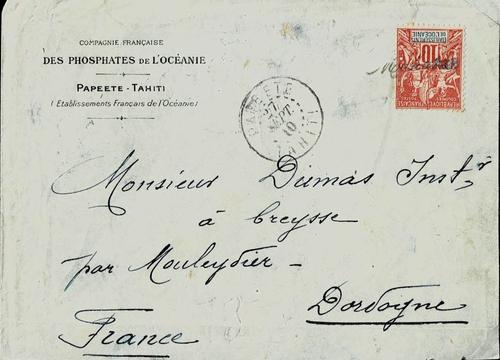 COMPAGNIE FRANÇAISE
DES PHOSPHATES DE L'OCÉANIE
PAPEETE - TAHITI
(Etablissements Français de l'Océanie)
ETABLISSEMENTS
DE L'OCÉANIE
10
RÉPUBLIQUE FRANÇAISE
PAPEETE
27
SEPT.
10
TAHITI
Monsieur Dumas Instr
à Creysse
par Mouleydier -
Dordogne
France